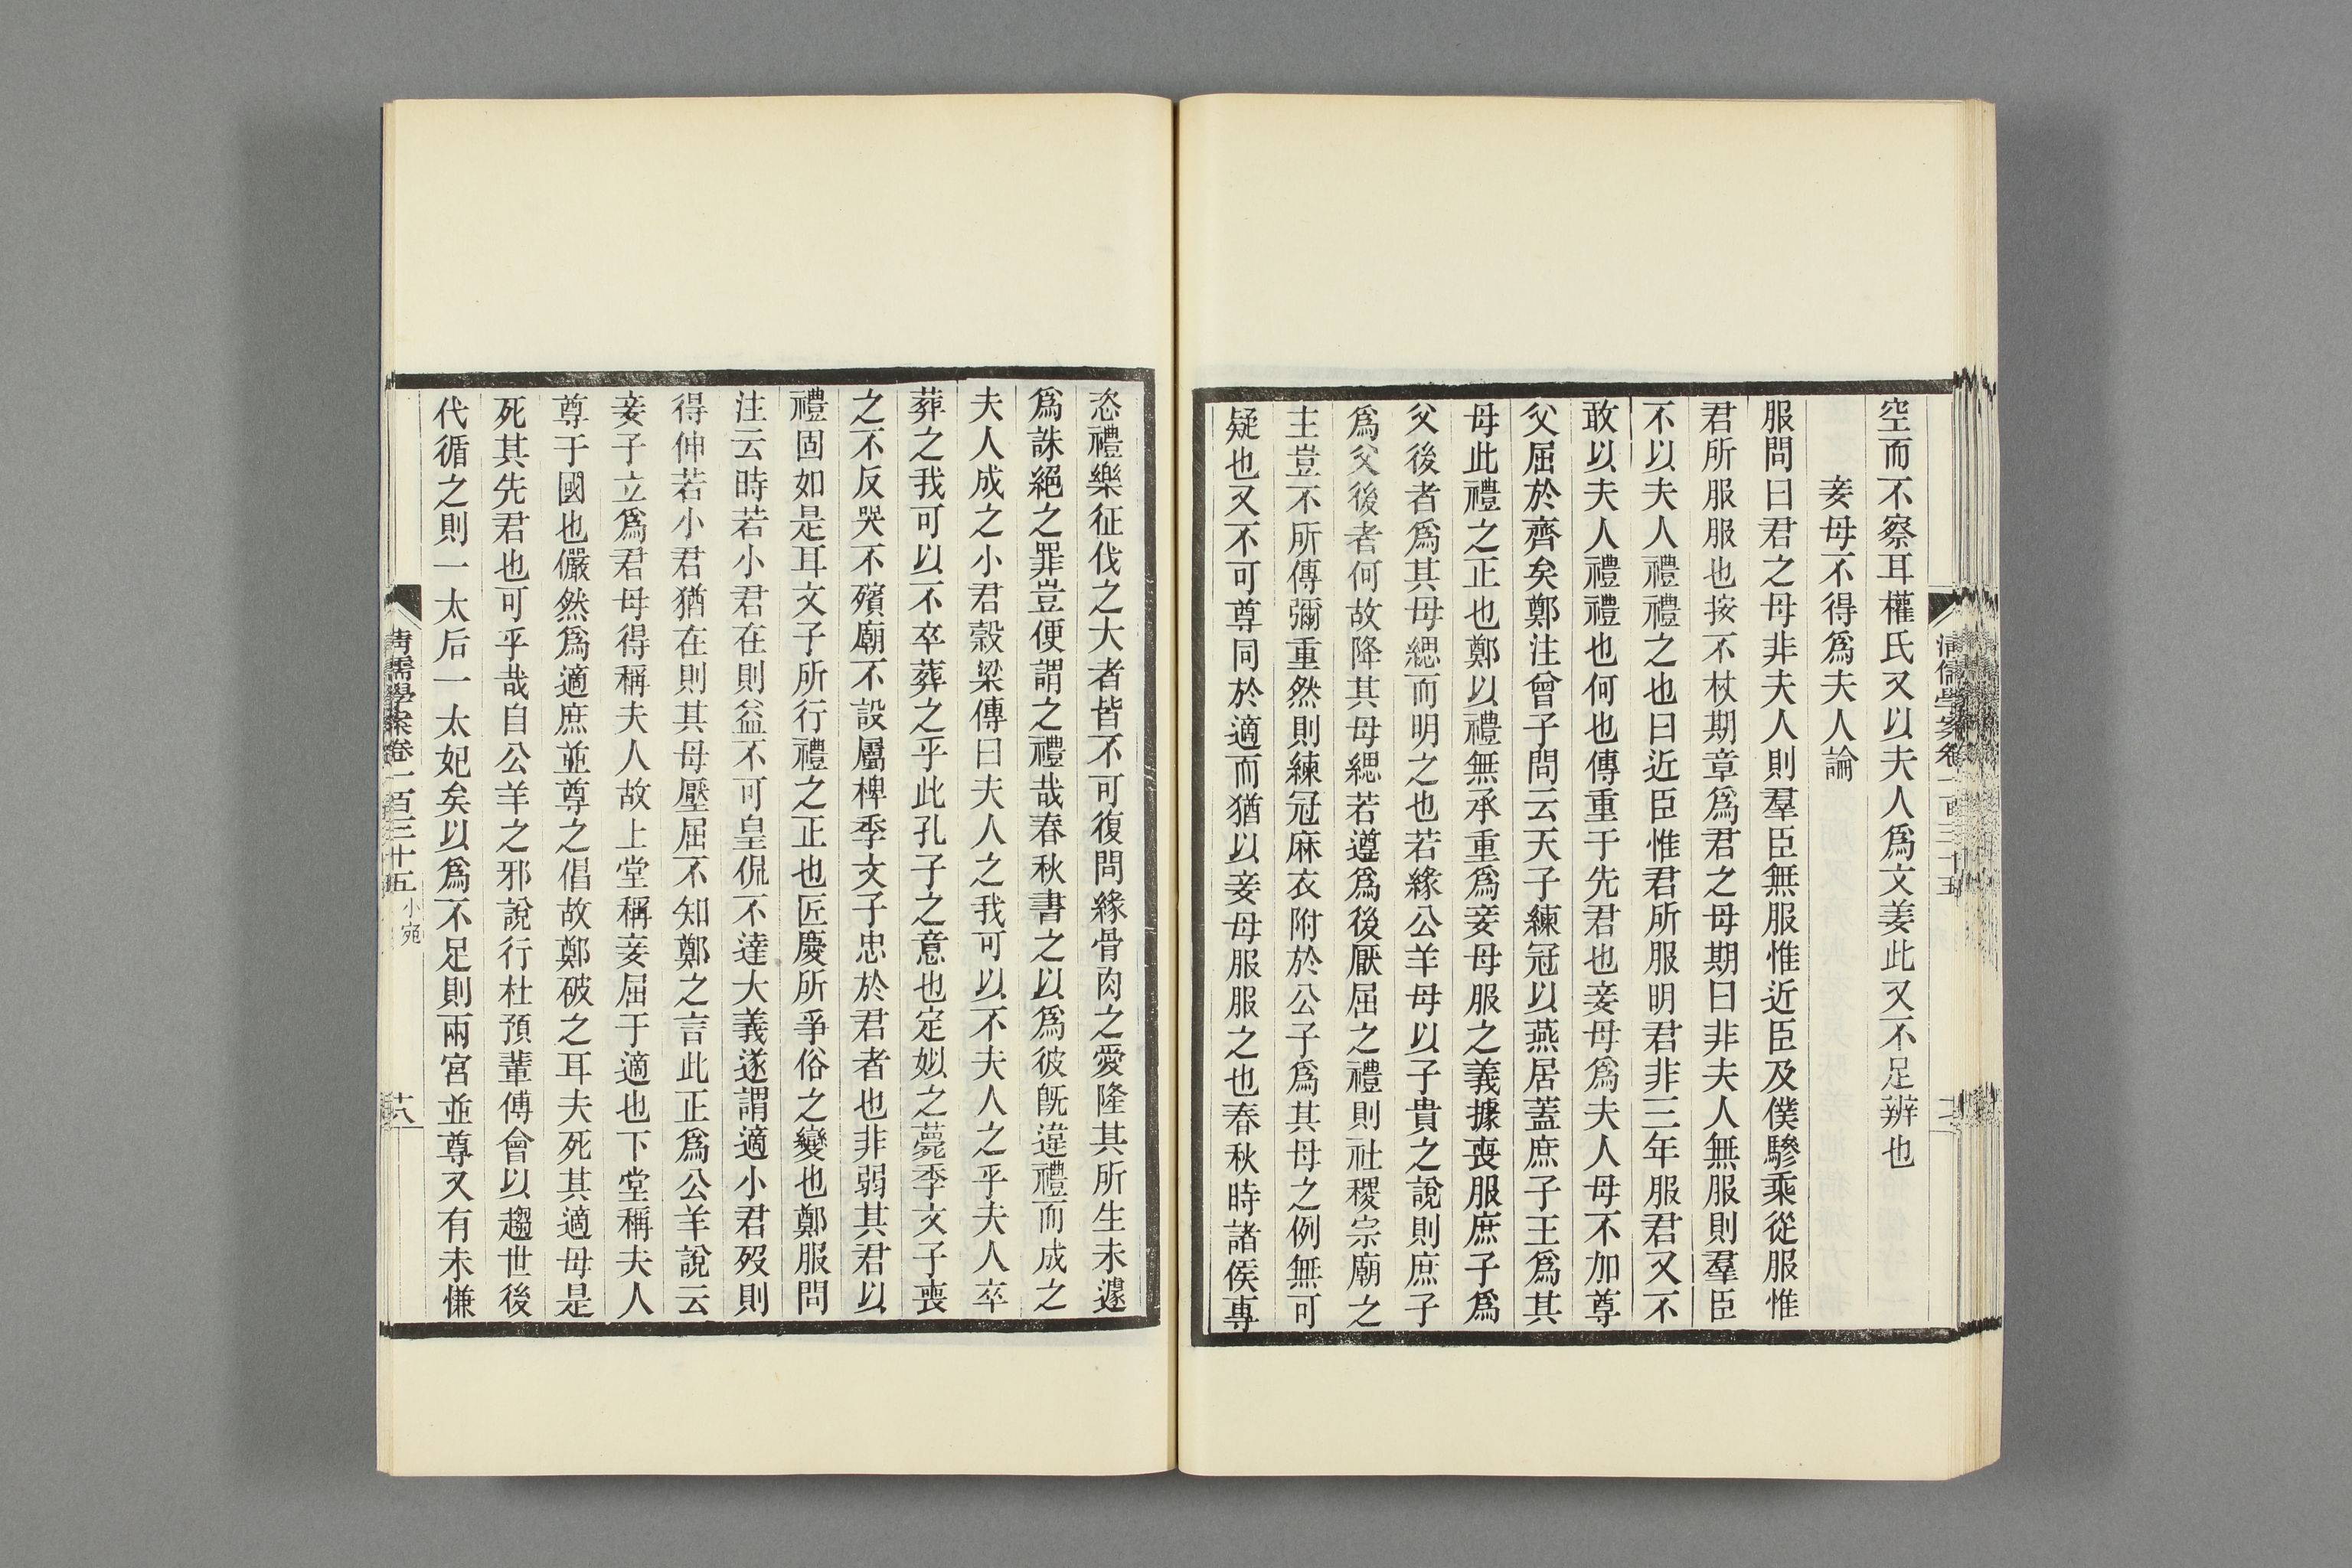 空而不察耳權氏又以夫人爲文姜此又不足辨也
妾母不得爲夫人論
服問曰君之母非夫人則羣臣無服惟近臣及僕驂乘從服惟
君所服服也按不杖期章爲君之母期曰非夫人無服則羣臣
不以夫人禮禮之也曰近臣惟君所服明君非三年服君又不
敢以夫人禮禮也何也傳重于先君也妾母爲夫人母不加尊
父屈於齊矣鄭注曾子問云天子練冠以燕居蓋庶子王爲其
母此禮之正也鄭以禮無承重爲妾母服之義據喪服庶子爲
父後者爲其母緦而明之也若緣公羊母以子貴之說則庶子
爲父後者何故降其母緦若遵爲後厭屈之禮則社稷宗廟之
主豈不所傳彌重然則練冠麻衣附於公子爲其母之例無可
疑也又不可尊同於適而猶以妾母服服之也春秋時諸侯專
恣禮樂征伐之大者皆不可復問緣骨肉之愛隆其所生未遽
爲誅絕之罪豈便謂之禮哉春秋書之以爲彼旣違禮而成之
夫人成之小君穀梁傳曰夫人之我可以不夫人之乎夫人卒
葬之我可以不卒葬之乎此孔子之意也定姒之薨季文子喪
之不反哭不殯廟不設屬椑季文子忠於君者也非弱其君以
禮固如是耳文子所行禮之正也匠慶所爭俗之變也鄭服問
注云時若小君在則益不可皇侃不達大義遂謂適小君歿則
得伸若小君猶在則其母壓屈不知鄭之言此正爲公羊說云
妾子立爲君母得稱夫人故上堂稱妾屈于適也下堂稱夫人
尊于國也儼然爲適庶並尊之倡故鄭破之耳夫死其適母是
死其先君也可乎哉自公羊之邪說行杜預輩傅會以趨世後
代循之則一太后一太妃矣以爲不足則兩宮並尊又有未慊
清儒學案卷一百三十五 小宛
十八